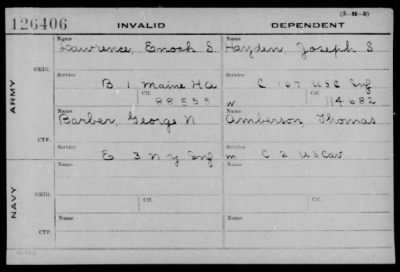 (3-M-5)
126406 INVALID DEPENDENT
Name Name
Lawrence, Enoch S. Hayden, Joseph S
ORIG. Service Service
B 1 Maine H.A. C 107 USC Inf
ARMY Ctf. Ctf.
88555 w 114682
Name Name
Barber, George N Amberson, Thomas
CTF. Service Service
E 3 N Y Inf m C 2 US Cav
Name Name
ORIG.
Service Ctf. Service Ctf.
NAVY
Name Name
CTF.
Service Service